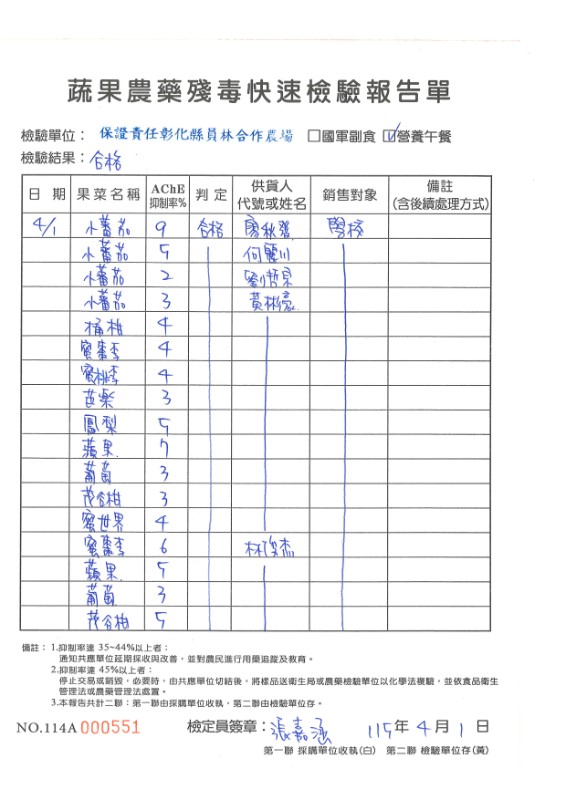 蔬果農藥殘毒快速檢驗報告單
檢驗單位： 保證責任彰化縣員林合作農場 □國軍副食 ☑營養午餐
檢驗結果：合格
日期 果菜名稱 AChE抑制率% 判定 供貨人代號或姓名 銷售對象 備註(含後續處理方式)
4/1 小蕃茄 9 合格 學校
小蕃茄 5
小蕃茄 2 劉哲泉
小蕃茄 3 黃林豪
桶柑 4
蜜棗李 4
蜜桃李 4
芭樂 3
鳳梨 5
蘋果 7
葡萄 3
茂谷柑 3
蜜世界 4
蜜棗李 6 林俊杰
蘋果 5
葡萄 3
茂谷柑 5
備註：1.抑制率達 35~44%以上者：
通知共應單位延期採收與改善，並對農民進行用藥追蹤及教育。
2.抑制率達 45%以上者：
停止交易或銷毀，必要時，由共應單位切結後，將樣品送衛生局或農藥檢驗單位以化學法複驗，並依食品衛生
管理法或農藥管理法處置。
3.本報告共計二聯：第一聯由採購單位收執，第二聯由檢驗單位存。
NO.114A 000551 檢定員簽章：張嘉涵 115年 4 月 1 日
第一聯 採購單位收執(白) 第二聯 檢驗單位存(黃)